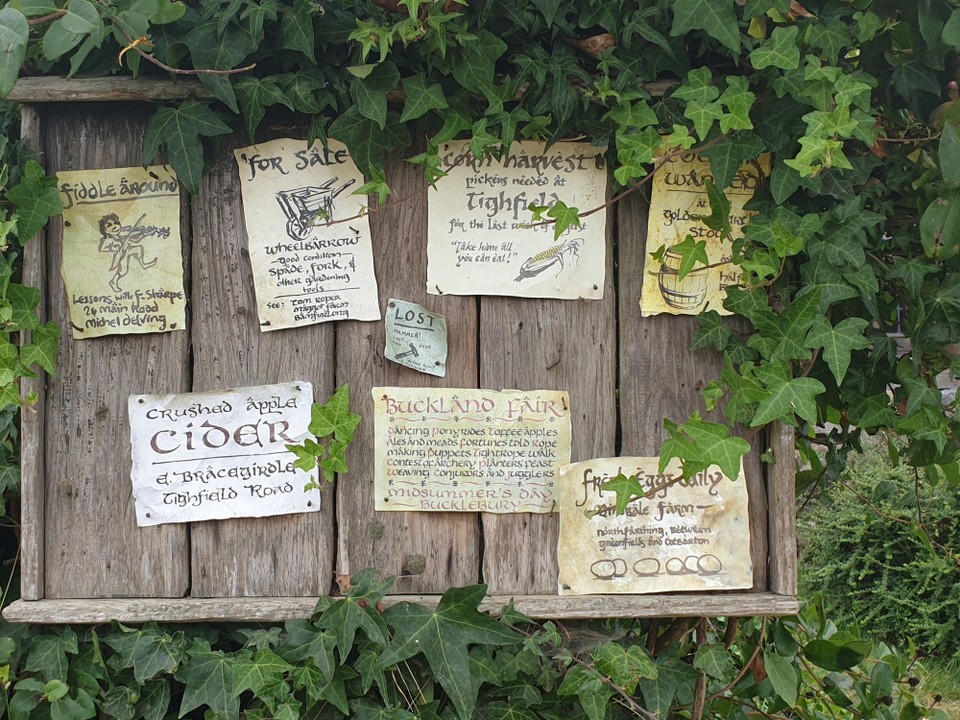 fiddle around
Lessons with F. Sharpe
24 Main Road
Michel delving
for sale
wheelbarrow
good condition
spade, fork, &
other gardening
tools
See: Tom Roper
Maggot Farm
Bamfurlong
corn harvest
pickers needed at
Tighfield
for the last week of
"Take home all
you can eat!"
wanted
at
golden
LOST
HAMMER!
crushed apple
cider
E. Bracegirdle
Tighfield Road
BUCKLAND FAIR
dancing pony rides toffee apples
ales and meads fortunes told rope
making puppets tightrope walk
contest of archery planters feast
weaving conjurors and jugglers
MIDSUMMER'S DAY
BUCKLEBURY
fresh eggs daily
farm
northfarthing, between
greenfields and oatbarton